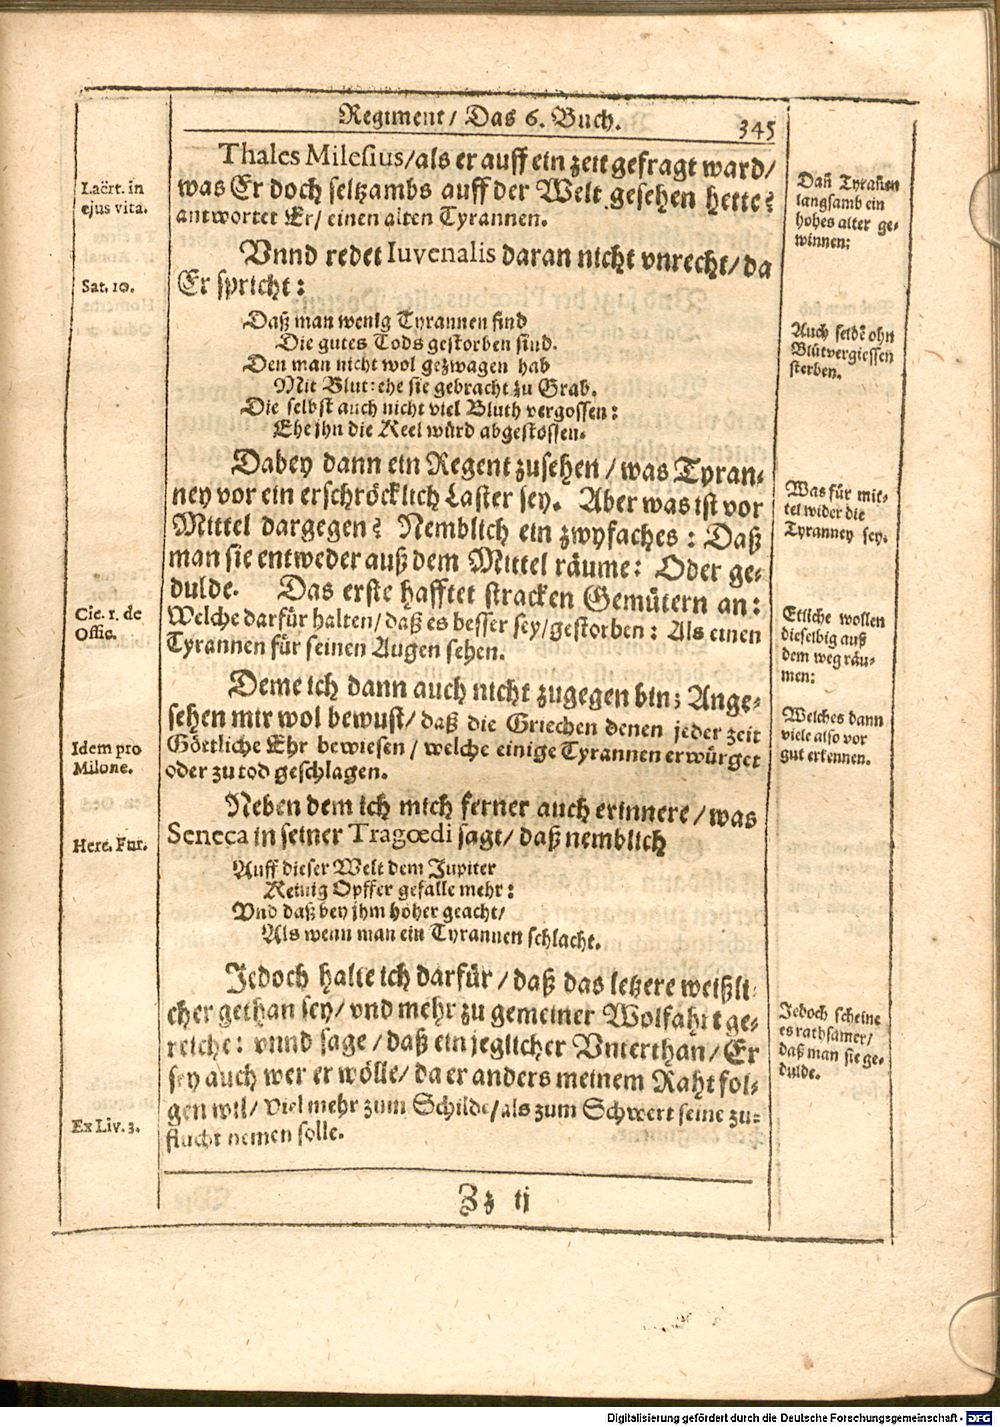 Regiment/ Das 6. Buch. 345
Thales Milesius/als er auff ein zeit gefragt ward/
was Er doch seltzambs auff der Welt gesehen hette?
antwortet Er/ einen alten Tyrannen.
Laërt. in
ejus vita.
Dañ Tyrañen
langsamb ein
hohes alter ge-
winnen:
Vnnd redet Iuvenalis daran nicht vnrecht/ da
Er spricht:
Sat. 10.
Daß man wenig Tyrannen find
Die gutes Tods gestorben sind.
Den man nicht wol gezwagen hab
Mit Blut: ehe sie gebracht zu Grab.
Die selbst auch nicht viel Bluth vergossen:
Ehe jhn die Keel würd abgestossen.
Auch seldẽ ohn
Blütvergiessen
sterben.
Dabey dann ein Regent zusehen / was Tyran-
ney vor ein erschröcklich Laster sey. Aber was ist vor
Mittel dargegen? Nemblich ein zwyfaches: Daß
man sie entweder auß dem Mittel räume: Oder ge-
dulde. Das erste hafftet stracken Gemütern an:
Welche darfür halten/ daß es besser sey/gestorben: Als einen
Tyrannen für seinen Augen sehen.
Was für mit-
tel wider die
Tyranney sey.
Cic. 1. de
Offic.
Etliche wollen
dieselbig auß
dem weg räu-
men:
Deme ich dann auch nicht zugegen bin; Ange-
sehen mir wol bewust/ daß die Griechen denen jeder zeit
Göttliche Ehr bewiesen / welche einige Tyrannen erwürget
oder zu tod geschlagen.
Idem pro
Milone.
Welches dann
viele also vor
gut erkennen.
Neben dem ich mich ferner auch erinnere / was
Seneca in seiner Tragœdi sagt/ daß nemblich
Herc. Fur.
Auff dieser Welt dem Jupiter
Keinig Opffer gefalle mehr:
Vnd daß bey jhm höher geacht/
Als wenn man ein Tyrannen schlacht.
Jedoch halte ich darfür / daß das letzere weißli-
cher gethan sey/ vnd mehr zu gemeiner Wolfahrt ge-
reiche: vnnd sage / daß ein jeglicher Vnterthan/ Er
sey auch wer er wölle/ da er anders meinem Raht fol-
gen wil/ viel mehr zum Schilde/als zum Schwert seine zu-
flucht nemen solle.
Jedoch scheine
es rathsamer/
daß man sie ge-
dulde.
Ex Liv. 3.
Zz ij
Digitalisierung gefördert durch die Deutsche Forschungsgemeinschaft - DFG